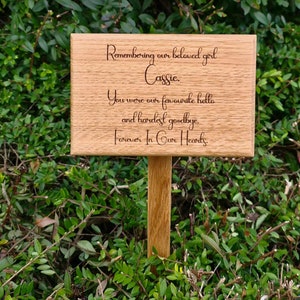 Remembering our beloved girl
Cassie.
You were our favourite hello
and hardest goodbye.
Forever In Our Hearts.